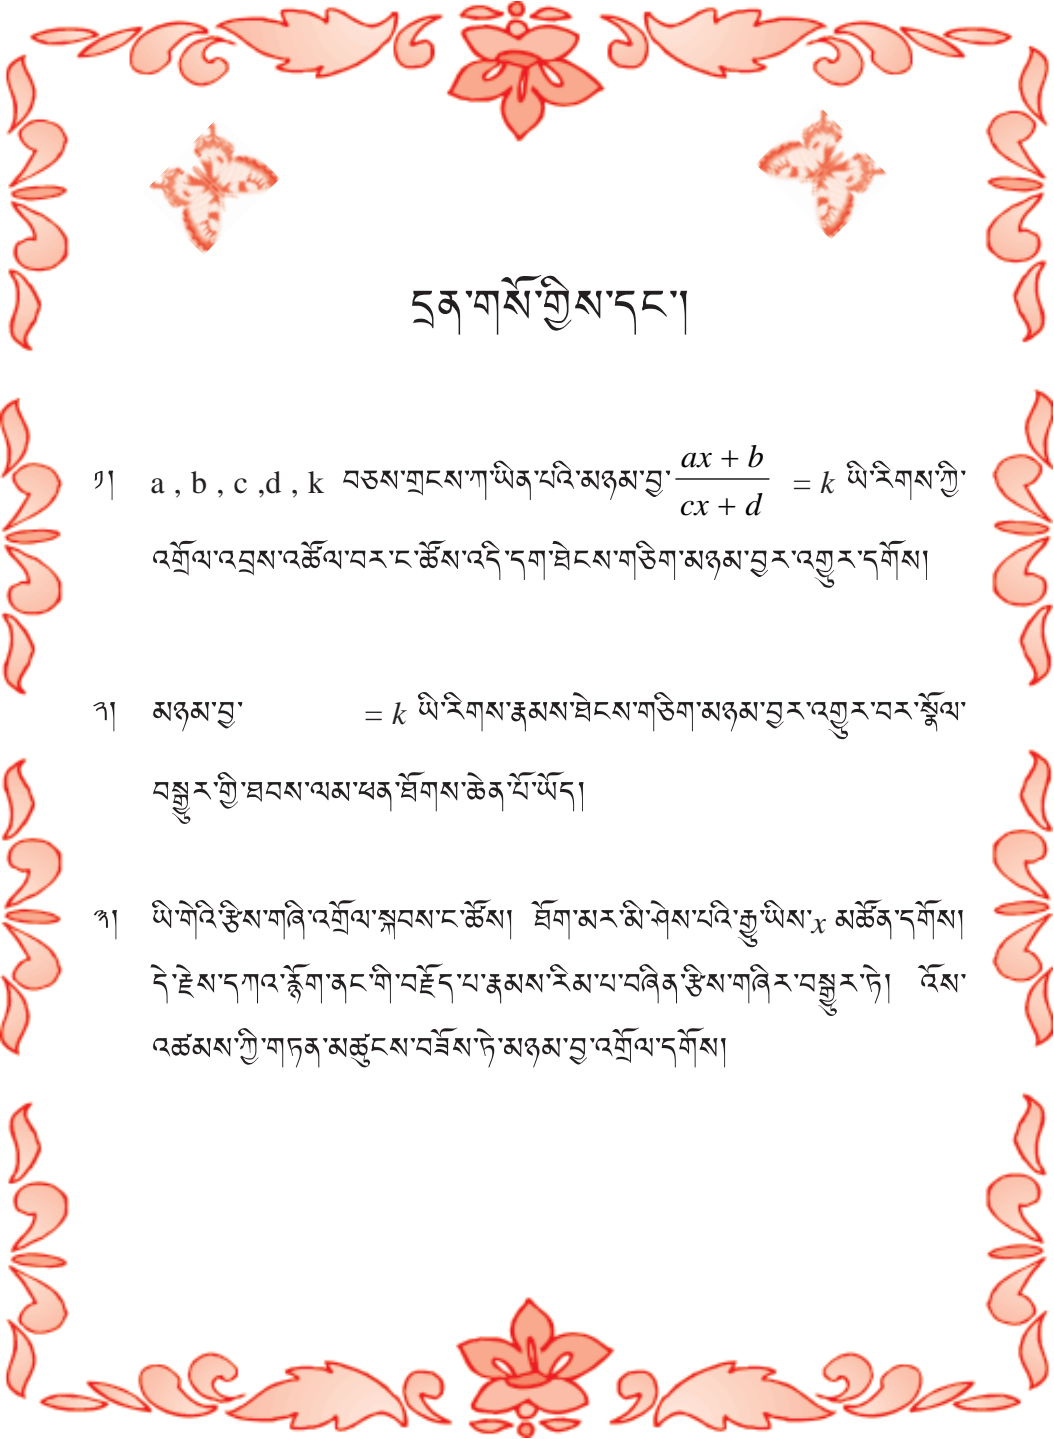 དྲན་གསོ་གྱིས་དང་།
༡། a , b , c ,d , k བཅས་གྲངས་ཀ་ཡིན་པའི་མཉམ་བྱ་ (ax + b)/(cx + d) = k ཡི་རིགས་ཀྱི་
འགྲོལ་འབྲས་འཚོལ་བར་ང་ཚོས་འདི་དག་ཐེངས་གཅིག་མཉམ་བྱར་འགྱུར་དགོས།
༢། མཉམ་བྱ་ = k ཡི་རིགས་རྣམས་ཐེངས་གཅིག་མཉམ་བྱར་འགྱུར་བར་སྣོལ་
བསྒྱུར་གྱི་ཐབས་ལམ་ཕན་ཐོགས་ཆེན་པོ་ཡོད།
༣། ཡི་གེའི་རྩིས་གཞི་འགྲོལ་སྐབས་ང་ཚོས། ཐོག་མར་མི་ཤེས་པའི་རྒྱུ་ཡིས་x མཚོན་དགོས།
དེ་རྗེས་དཀའ་རྙོག་ནང་གི་བརྗོད་པ་རྣམས་རིམ་པ་བཞིན་རྩིས་གཞིར་བསྒྱུར་ཏེ། འོས་
འཚམས་ཀྱི་གཏན་མཚུངས་བཟོས་ཏེ་མཉམ་བྱ་འགྲོལ་དགོས།